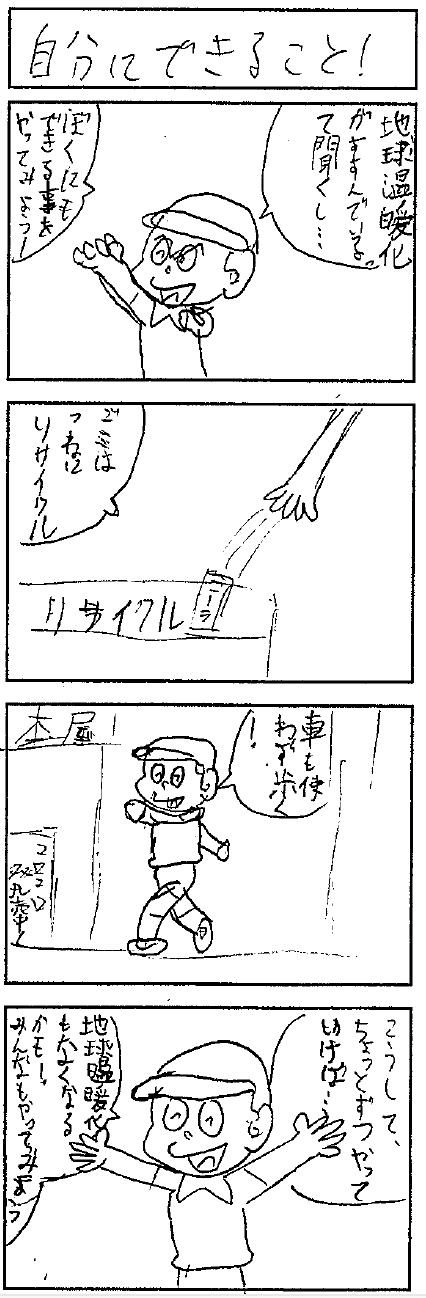 自分にできること!
地球温暖化
がすすんでいるっ
て聞くし…
ぼくにも
できる事を
やってみよう!
ごみは
つねに
リサイクル
リサイクル
車も使
わず歩く
!
本屋
コロコロ
発売中
こうして、
ちょっとずつやって
いけば…
地球温暖化
もなくなる
かも!
みんなもやってみよう